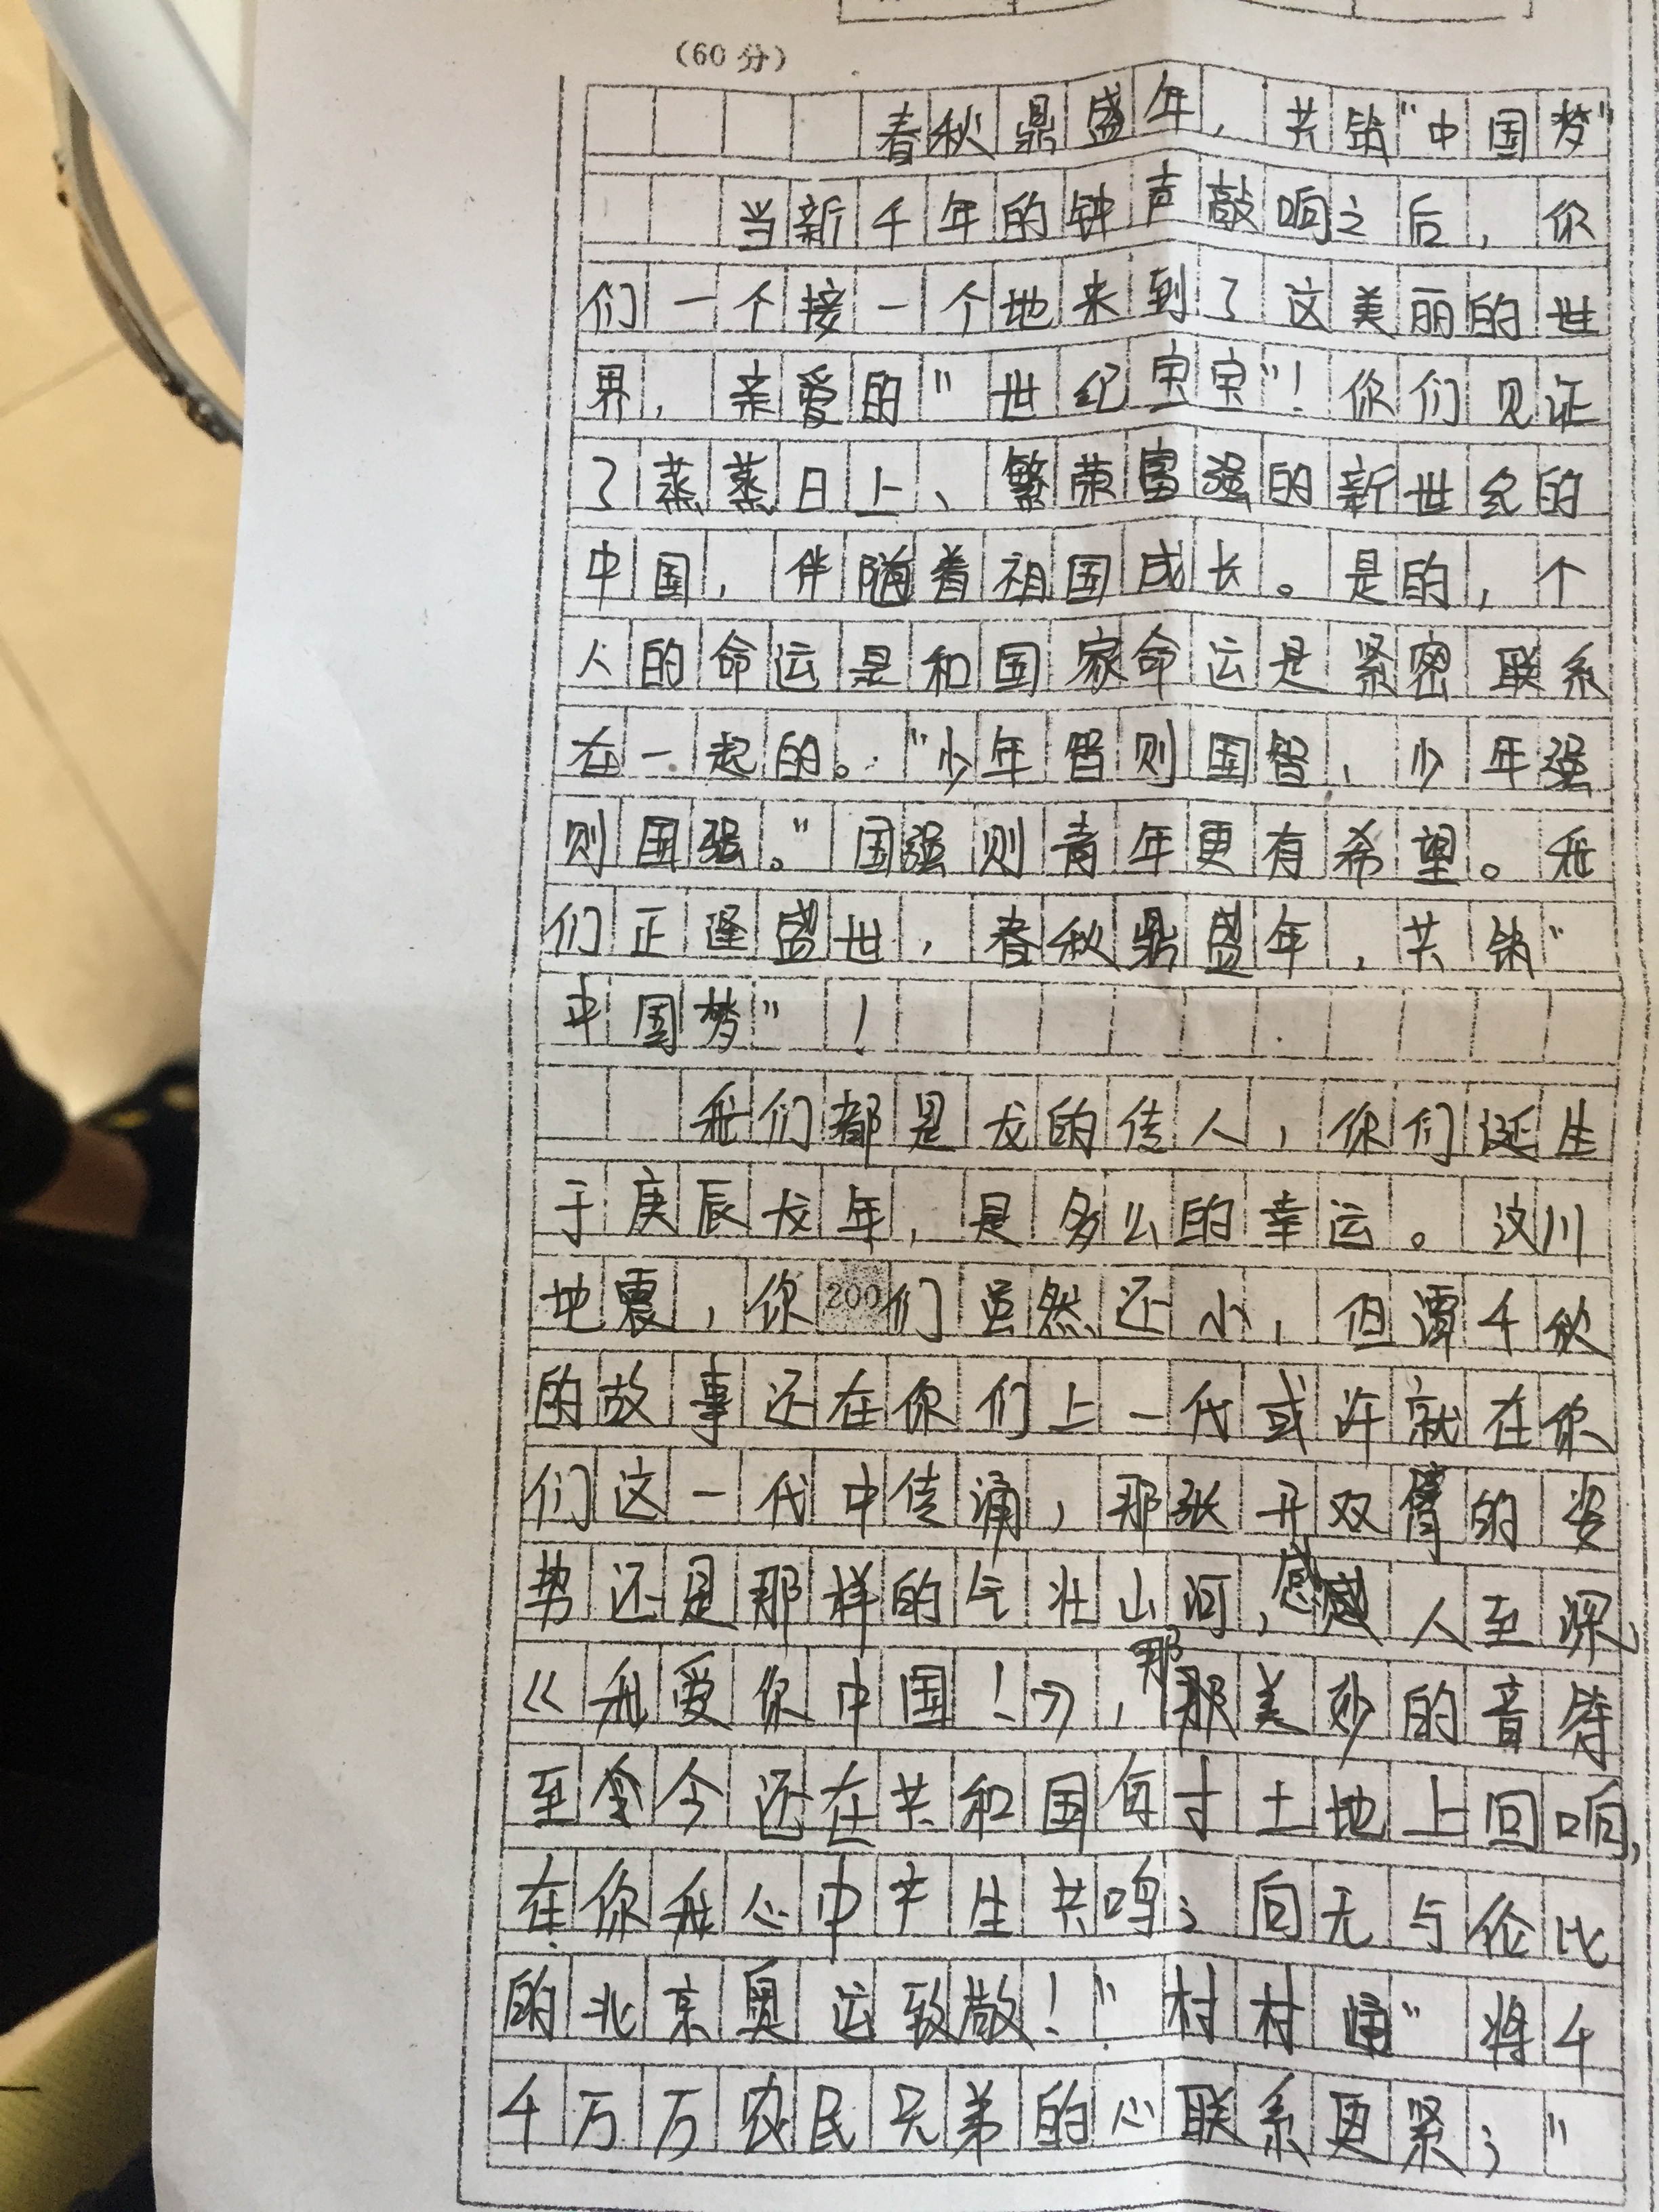 (60分)
春秋鼎盛年，共筑"中国梦"
当新千年的钟声敲响之后，你
们一个接一个地来到了这美丽的世
界，亲爱的"世纪宝宝"！你们见证
了蒸蒸日上、繁荣富强的新世纪的
中国，伴随着祖国成长。是的，个
人的命运是和国家命运是紧密联系
在一起的。"少年智则国智，少年强
则国强。"国强则青年更有希望。我
们正逢盛世，春秋鼎盛年，共筑"
中国梦"！
我们都是龙的传人，你们诞生
于庚辰龙年，是多么的幸运。汶川
地震，你200们虽然还小，但谭千秋
的故事还在你们上一代或许就在你
们这一代中传涌，那张开双臂的姿
势还是那样的气壮山河，感人至深，
《我爱你中国！》，那美妙的音符
至今还在共和国每寸土地上回响，
在你我心中产生共鸣；向无与伦比
的北京奥运致敬！"村村通"将千
千万万农民兄弟的心联系更紧；"